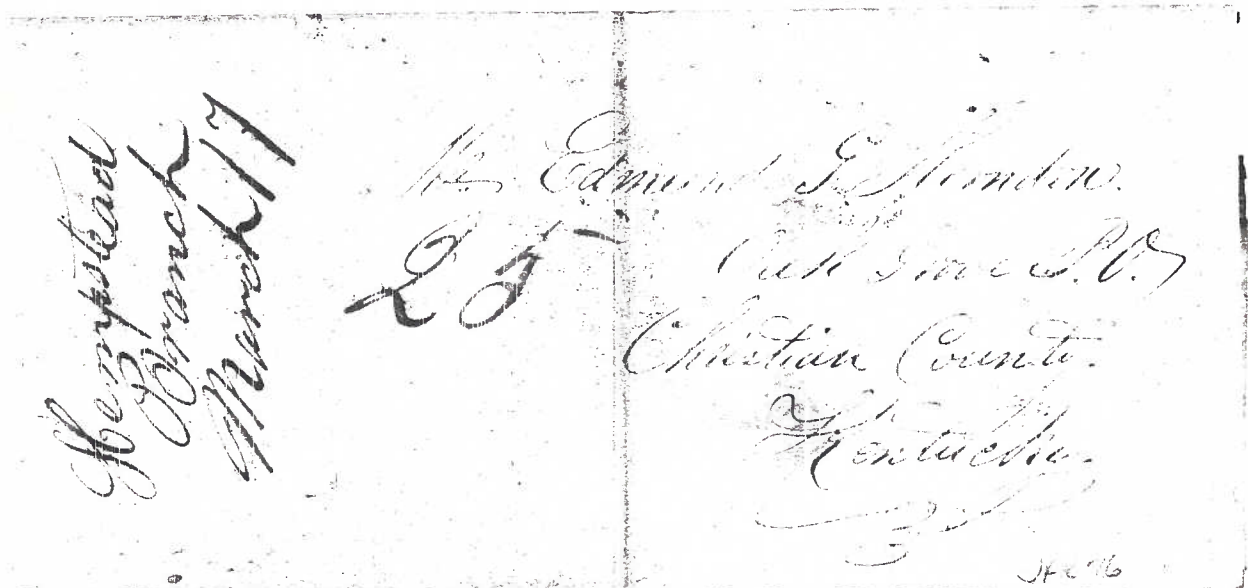 Hempstead
Branch
March 17
Mr. Edmund T. Herndon.
25
Oak Grove P.O.
Christian County.
Kentucky.